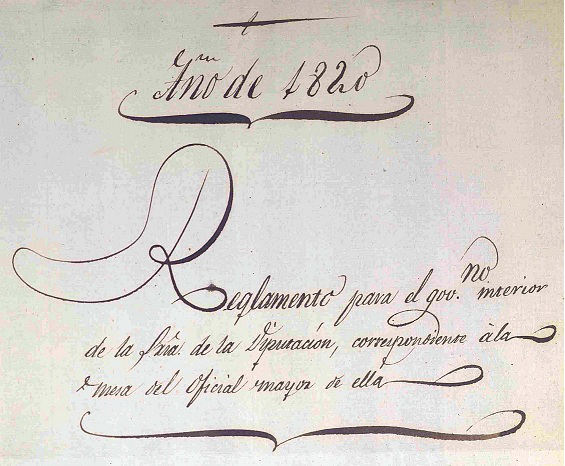 Año de 1820
Reglamento para el gov.no interior
de la Sría. de la Diputación, correspondiente à la
mesa del Oficial mayor de ella